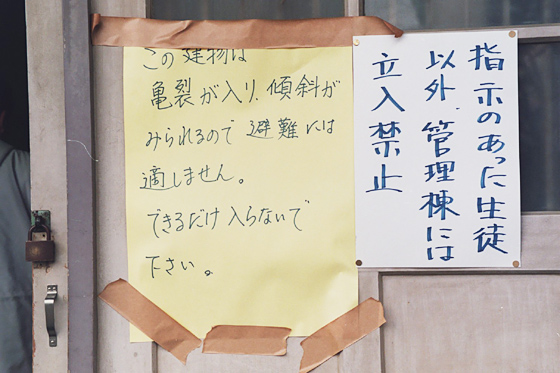 この建物は
亀裂が入り、傾斜が
みられるので避難には
適しません。
できるだけ入らないで
下さい。
指示のあった生徒
以外、管理棟には
立入禁止